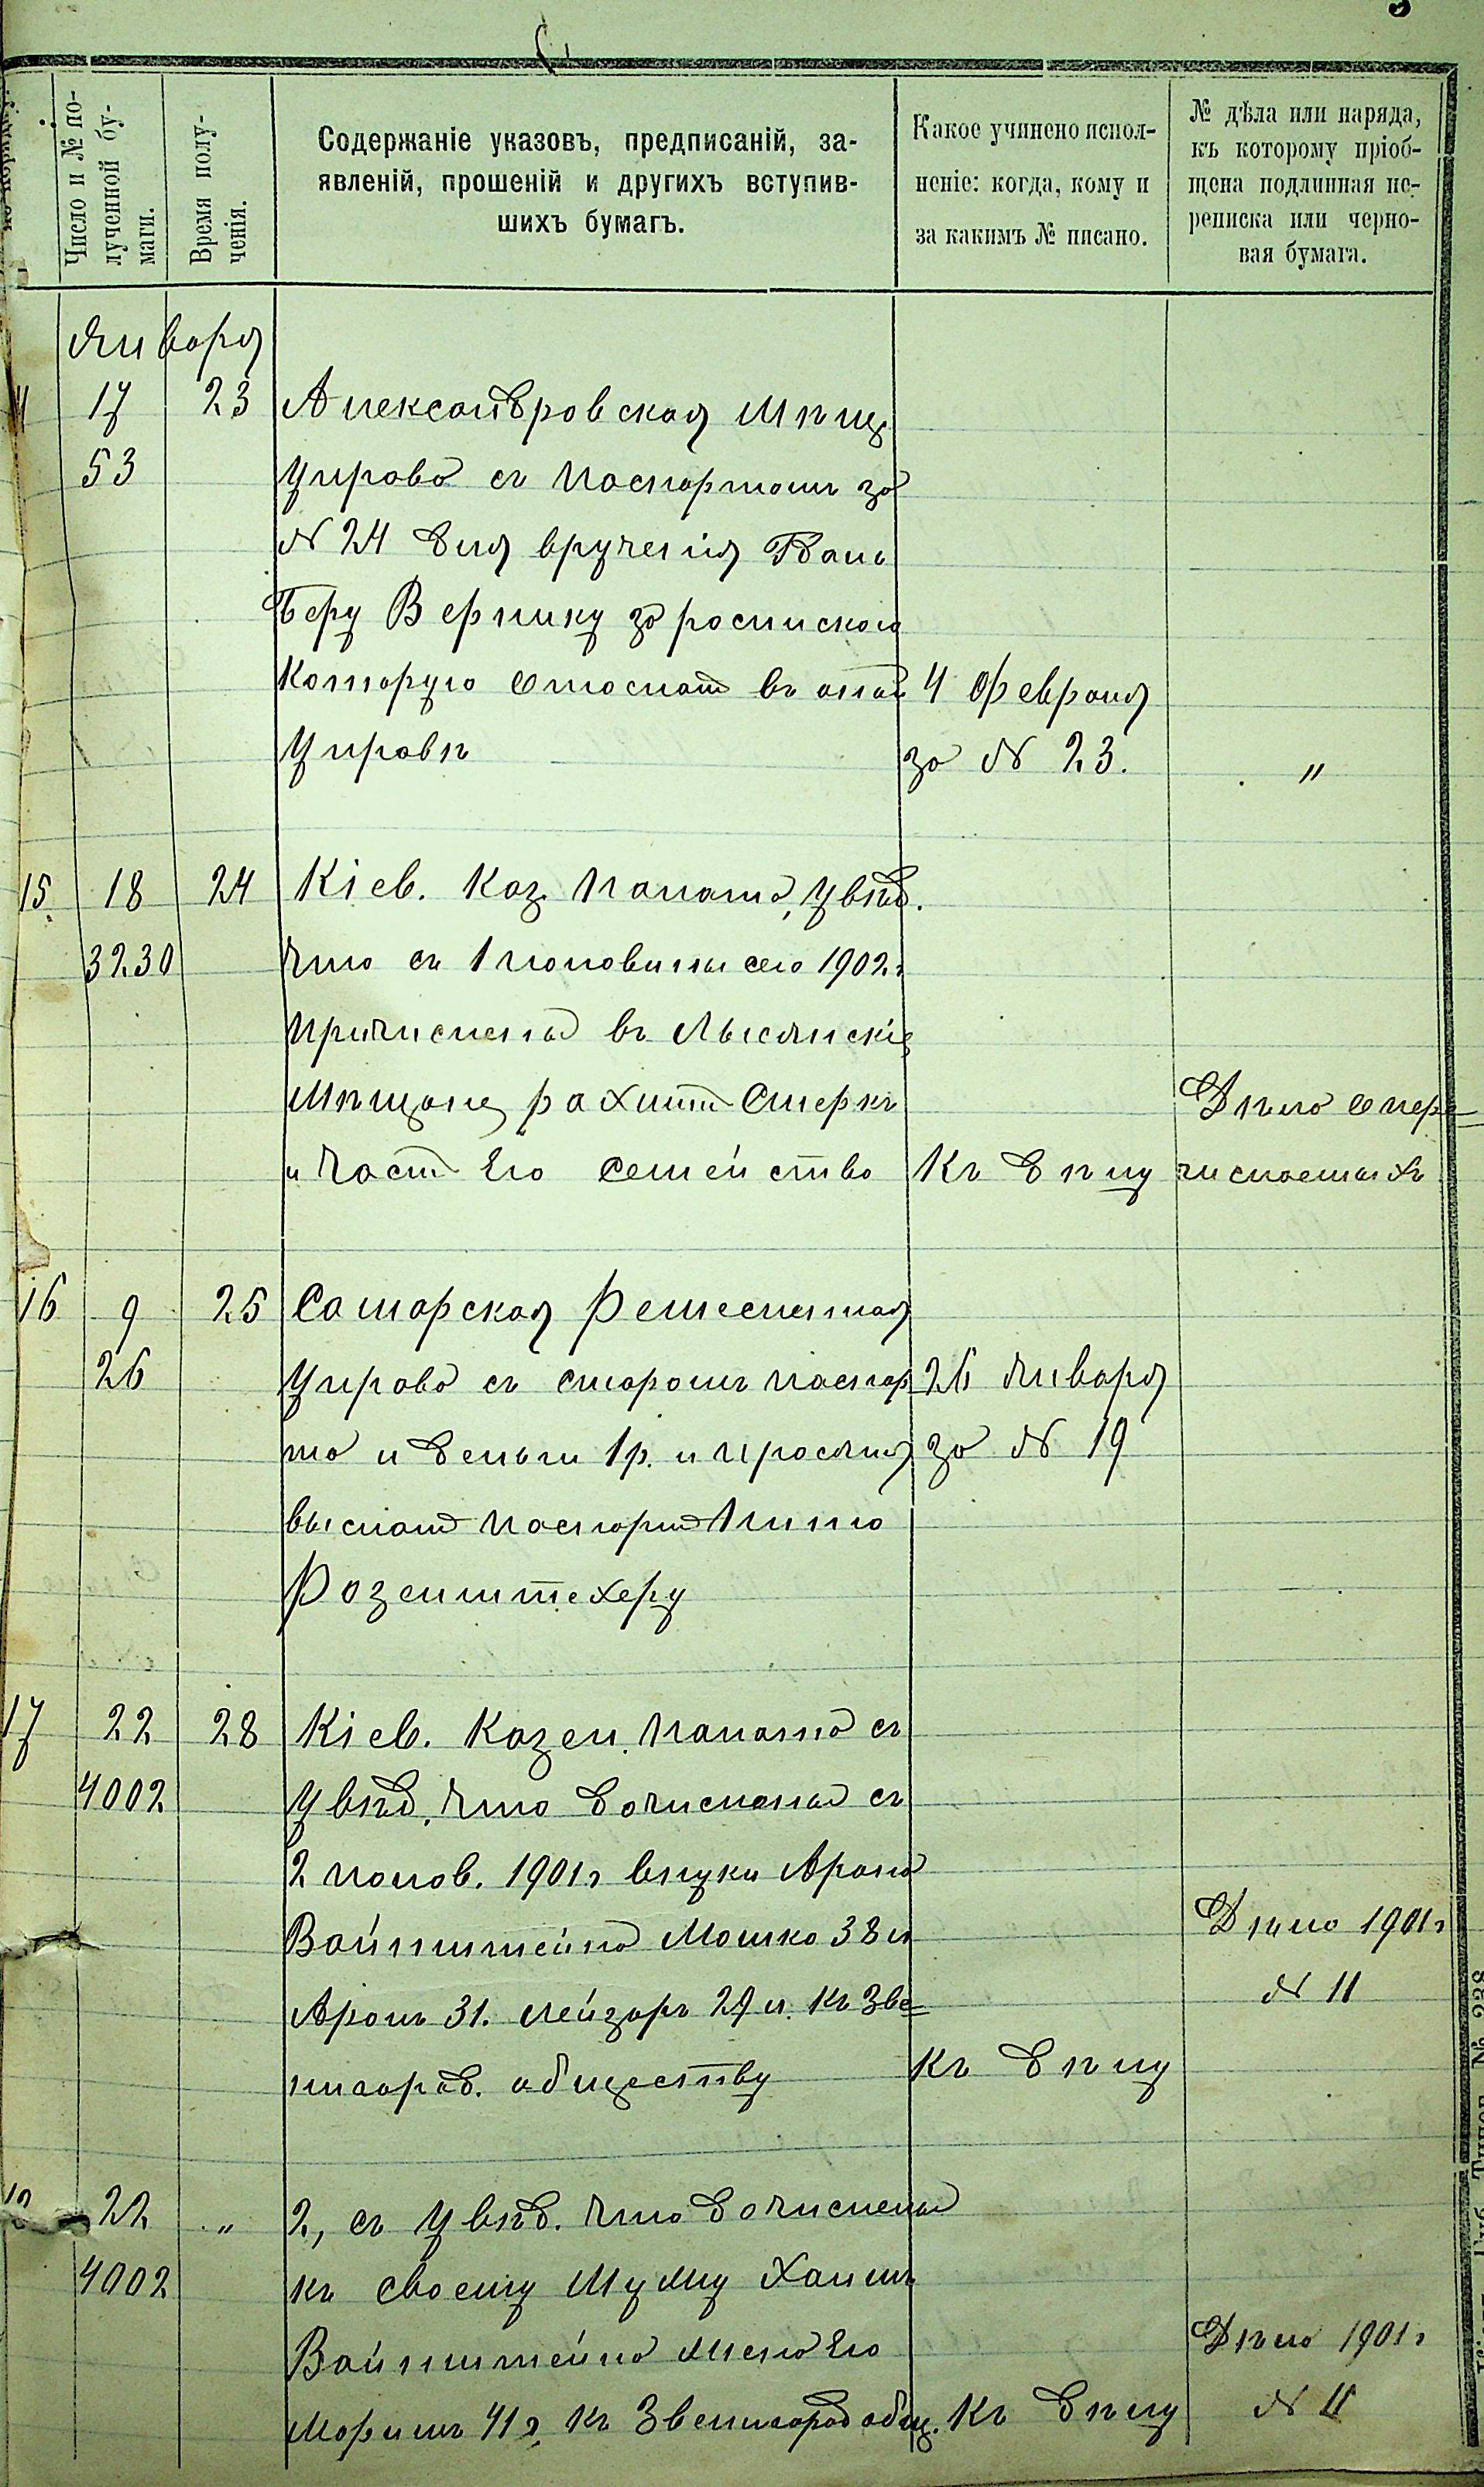 Число и № по-
лученной бу-
маги.
Время полу-
ченія.
Содержаніе указовъ, предписаній, за-
явленій, прошеній и другихъ вступив-
шихъ бумагъ.
Какое учинено испол-
неніе: когда, кому и
за какимъ № писано.
№ дѣла или наряда,
къ которому пріоб-
щена подлинная пе-
реписка или черно-
вая бумага.
Января
17 23 Александровская Мѣщ
53 Управа съ паспортомъ за
№ 24 для врученія
Беру Вернику за роспискою
которую отослать въ
Управѣ
4 Февраля
за № 23. "
15 18 24 Кіев. Каз. Палата, увѣд.
3230 что съ 1 половины сего 1902 г
причислены въ Лысянскіе
Мѣщане Стеркъ
и часть его семейства
Къ дѣлу
Дѣло о пере-
числяемыхъ
16 9 25 Самарская Ремесленная
26 Управа съ старымъ паспор
та и деньги 1 р. и просила
выслать паспортъ
Розенштехеру
26 Января
за № 19
17 22 28 Кіев. Казен. Палата съ
4002 увѣд. что дочислены съ
2 полов. 1901 г внуки Арона
Вайнштейна Мошко 38 л
Аронъ 31. Лейзоръ 29 л. къ Зве-
нигород. обществу
Къ дѣлу
Дѣло 1901 г
№ 11
22 " 2, съ увѣд. что дочислена
4002 къ своему Мужу Хаимъ
Вайнштейна жена Его
41 г, къ Звенигород общ. Къ дѣлу
Дѣло 1901 г
№ 11